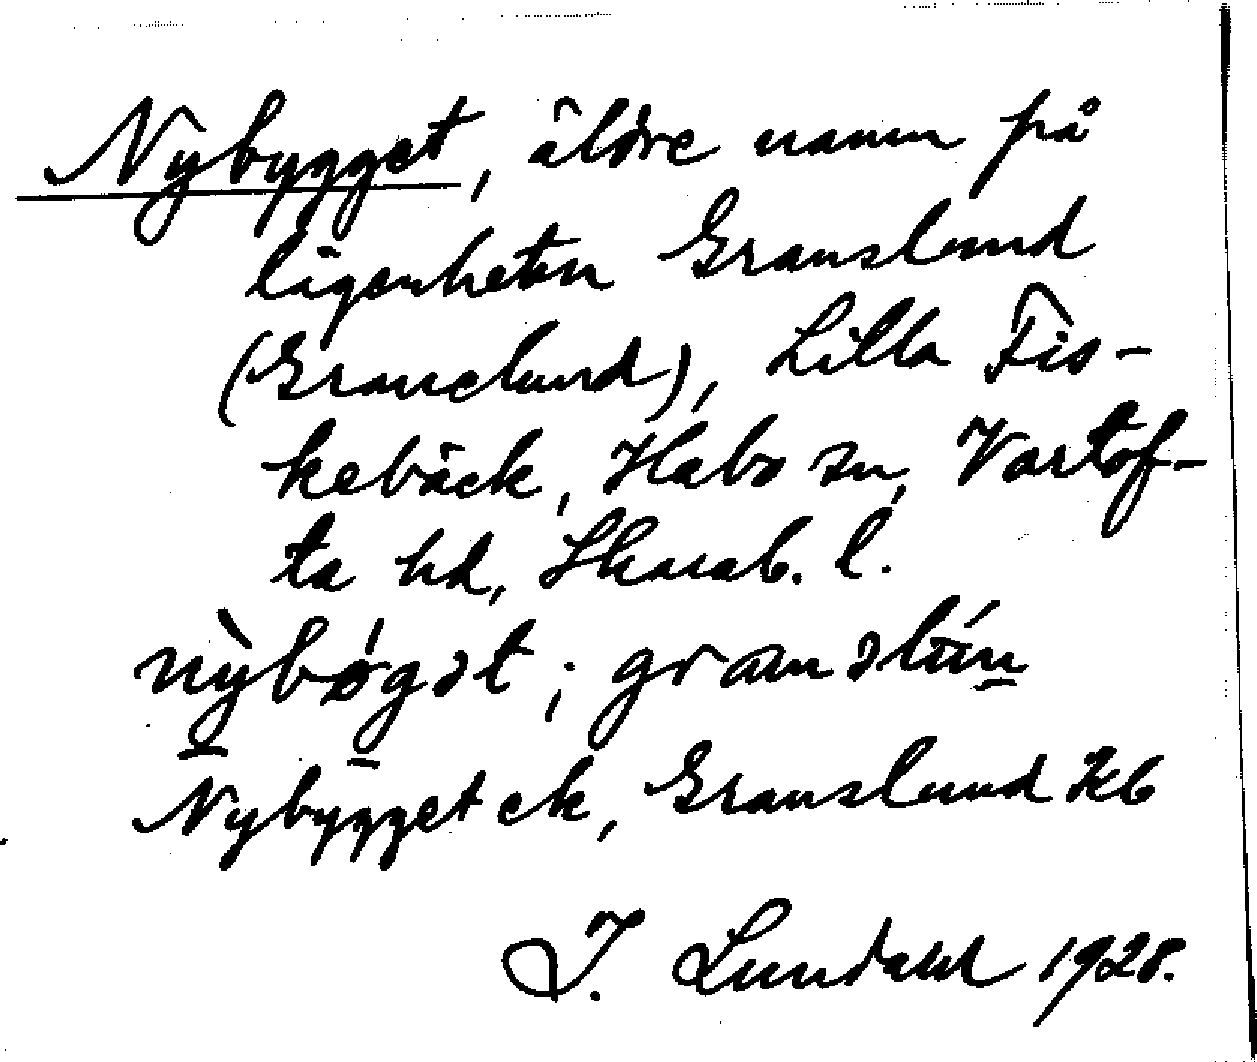 Nybygget, äldre namn på
lägenheten Granslund
(Granelund), Lilla Fis-
kebäck, Habo sn, Vartof-
ta hd, Skarab. l.
nỳbǿgət; granslún
Nybygget ek, Granslund kb
I. Lundahl 1928.